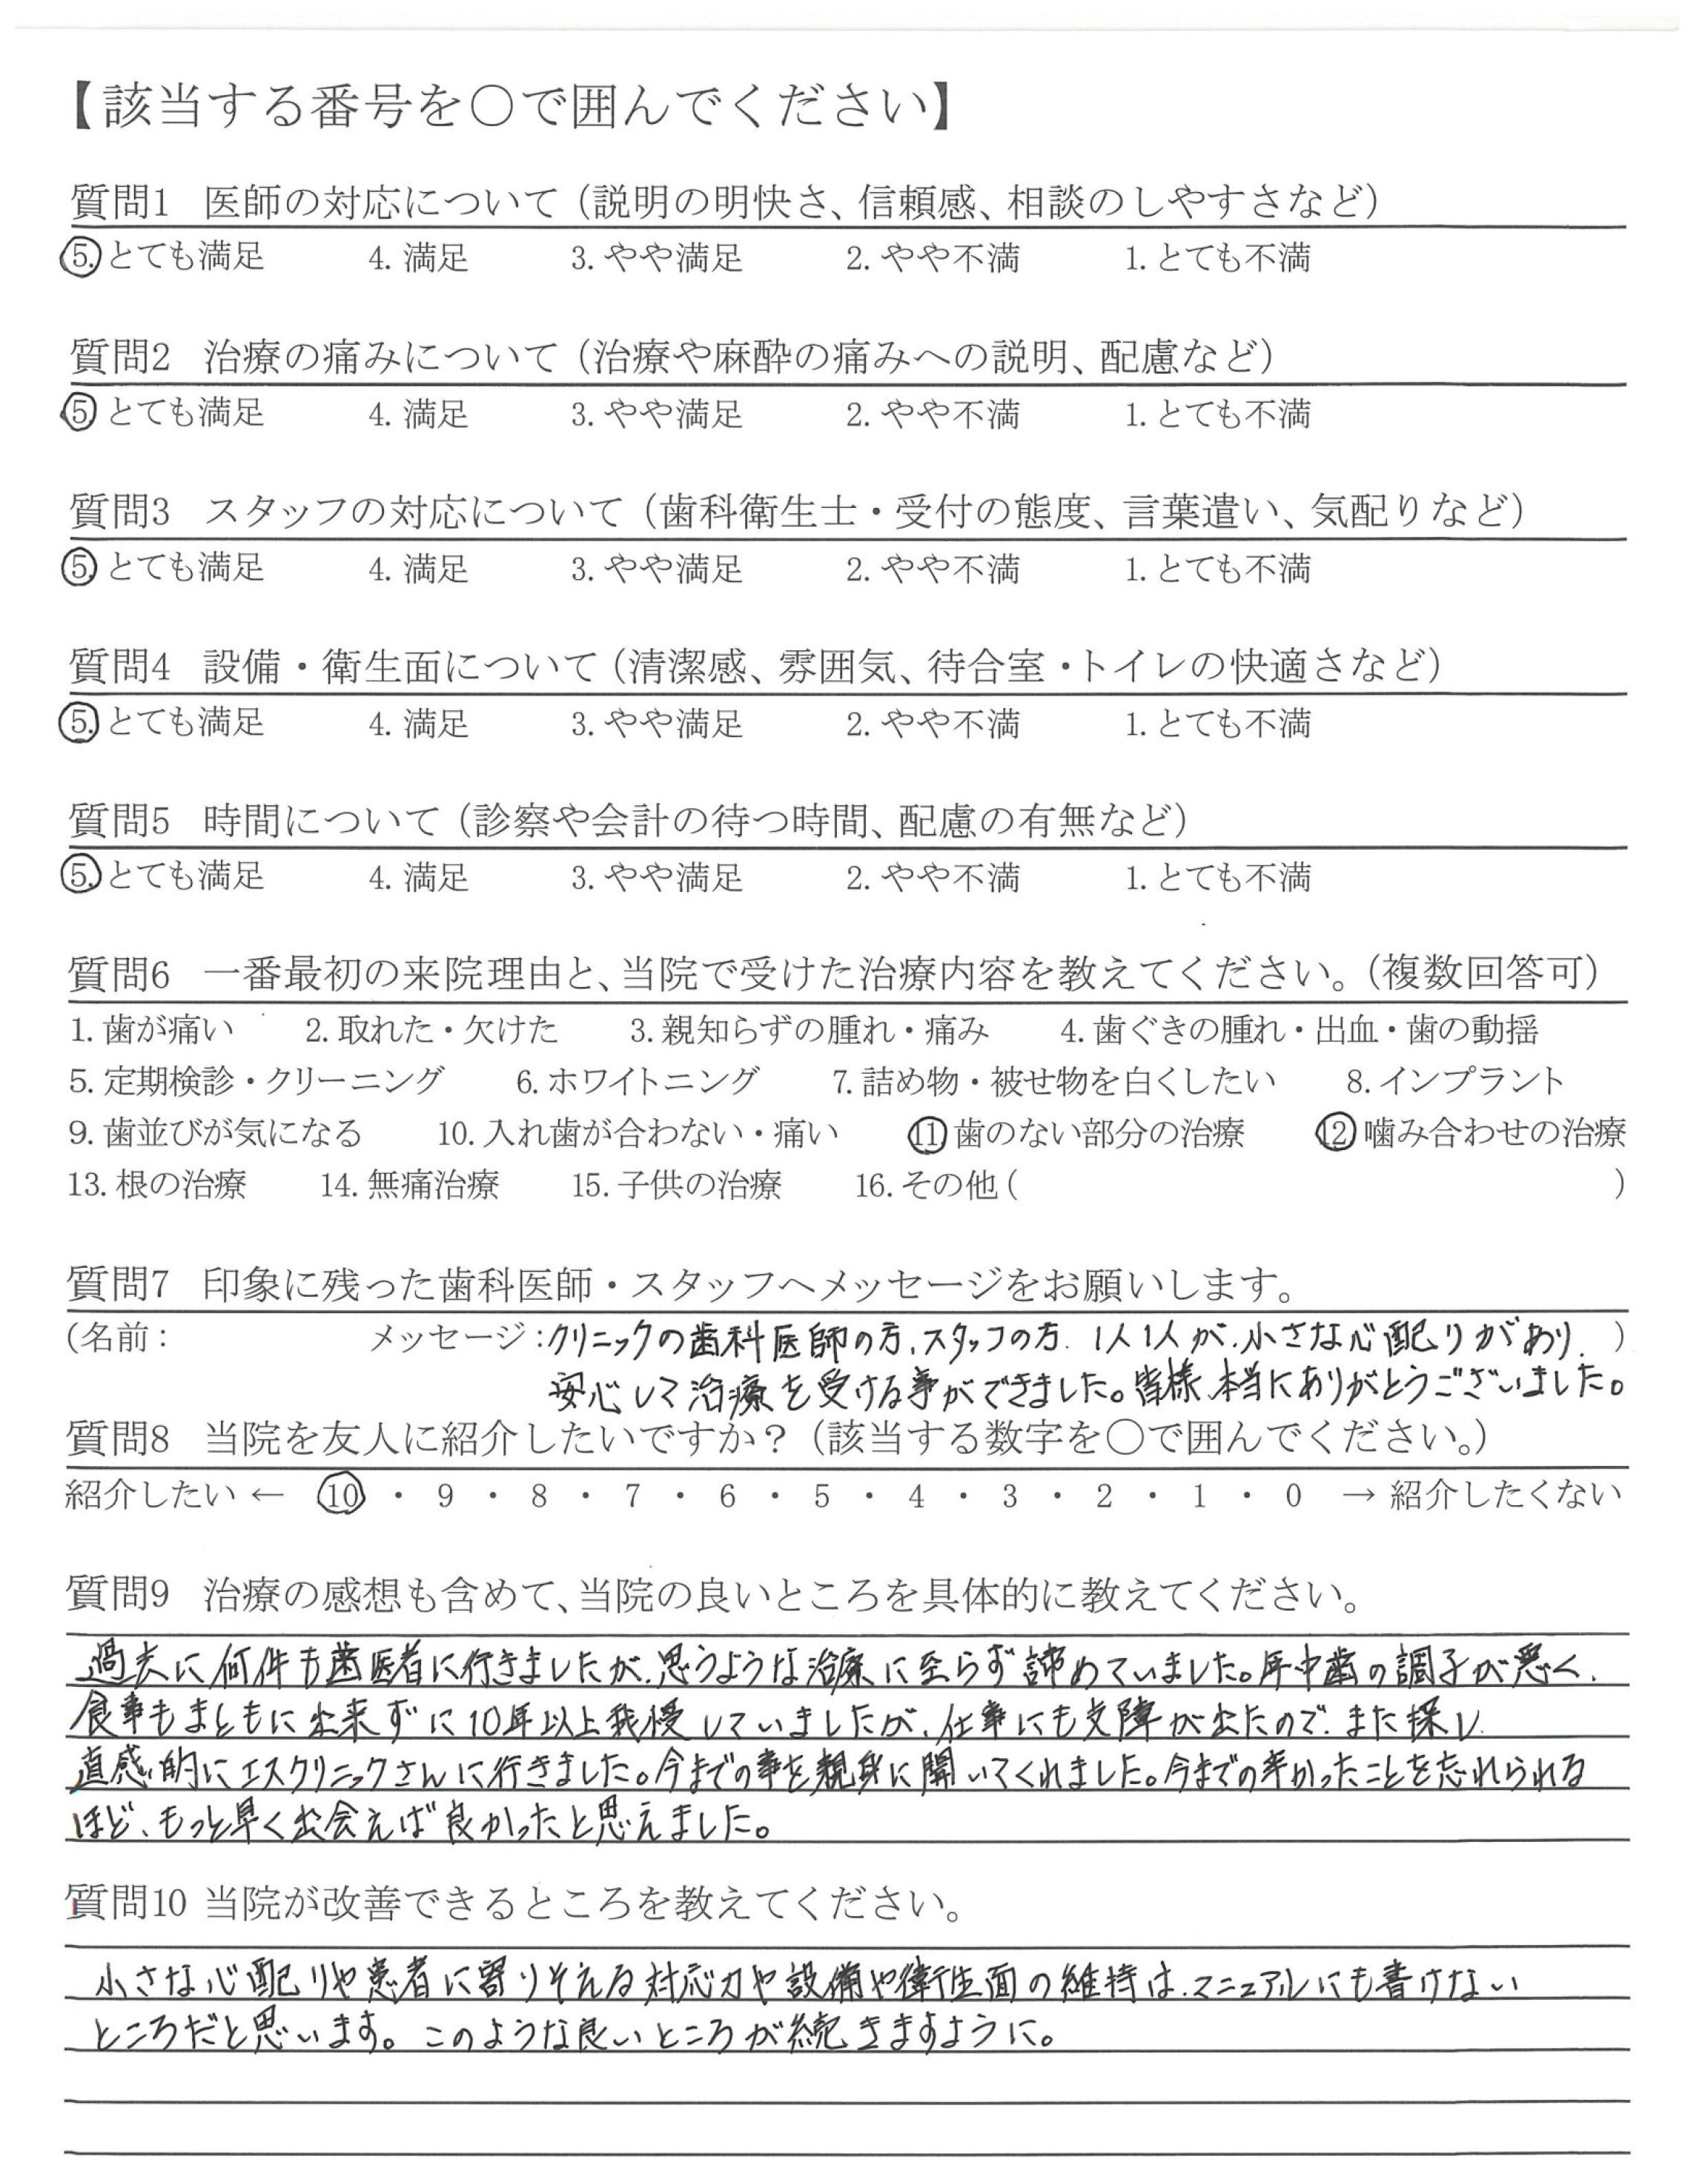 【該当する番号を○で囲んでください】
質問1 医師の対応について（説明の明快さ、信頼感、相談のしやすさなど）
5. とても満足 4. 満足 3. やや満足 2. やや不満 1. とても不満
質問2 治療の痛みについて（治療や麻酔の痛みへの説明、配慮など）
5 とても満足 4. 満足 3. やや満足 2. やや不満 1. とても不満
質問3 スタッフの対応について（歯科衛生士・受付の態度、言葉遣い、気配りなど）
5. とても満足 4. 満足 3. やや満足 2. やや不満 1. とても不満
質問4 設備・衛生面について（清潔感、雰囲気、待合室・トイレの快適さなど）
5. とても満足 4. 満足 3. やや満足 2. やや不満 1. とても不満
質問5 時間について（診察や会計の待つ時間、配慮の有無など）
5. とても満足 4. 満足 3. やや満足 2. やや不満 1. とても不満
質問6 一番最初の来院理由と、当院で受けた治療内容を教えてください。（複数回答可）
1. 歯が痛い 2. 取れた・欠けた 3. 親知らずの腫れ・痛み 4. 歯ぐきの腫れ・出血・歯の動揺
5. 定期検診・クリーニング 6. ホワイトニング 7. 詰め物・被せ物を白くしたい 8. インプラント
9. 歯並びが気になる 10. 入れ歯が合わない・痛い 11 歯のない部分の治療 12 噛み合わせの治療
13. 根の治療 14. 無痛治療 15. 子供の治療 16. その他( )
質問7 印象に残った歯科医師・スタッフへメッセージをお願いします。
（名前： メッセージ：クリニックの歯科医師の方、スタッフの方、1人1人が、小さな心配りがあり、）
安心して治療を受ける事ができました。皆様、本当にありがとうございました。
質問8 当院を友人に紹介したいですか？（該当する数字を○で囲んでください。）
紹介したい ← 10 ・ 9 ・ 8 ・ 7 ・ 6 ・ 5 ・ 4 ・ 3 ・ 2 ・ 1 ・ 0 → 紹介したくない
質問9 治療の感想も含めて、当院の良いところを具体的に教えてください。
過去に何件も歯医者に行きましたが、思うような治療に至らず諦めていました。年中歯の調子が悪く、
食事もまともに出来ずに10年以上我慢していましたが、仕事にも支障が出たので、また探し
直感的にエスクリニックさんに行きました。今までの事を親身に聞いてくれました。今までの辛かったことを忘れられる
ほど、もっと早く出会えば良かったと思えました。
質問10 当院が改善できるところを教えてください。
小さな心配りや患者に寄りそえる対応力や設備や衛生面の維持は、マニュアルにも書けない
ところだと思います。このような良いところが続きますように。